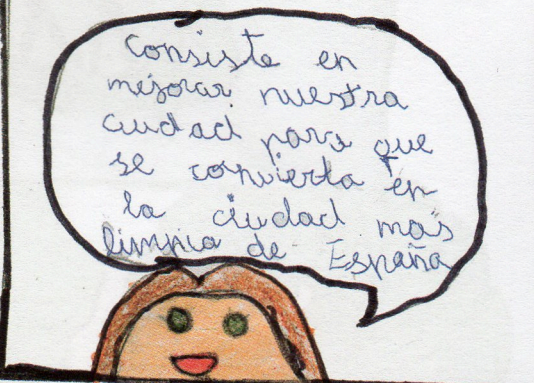 Consiste en
mejorar nuestra
ciudad para que
se convierta en
la ciudad mas
limpia de España